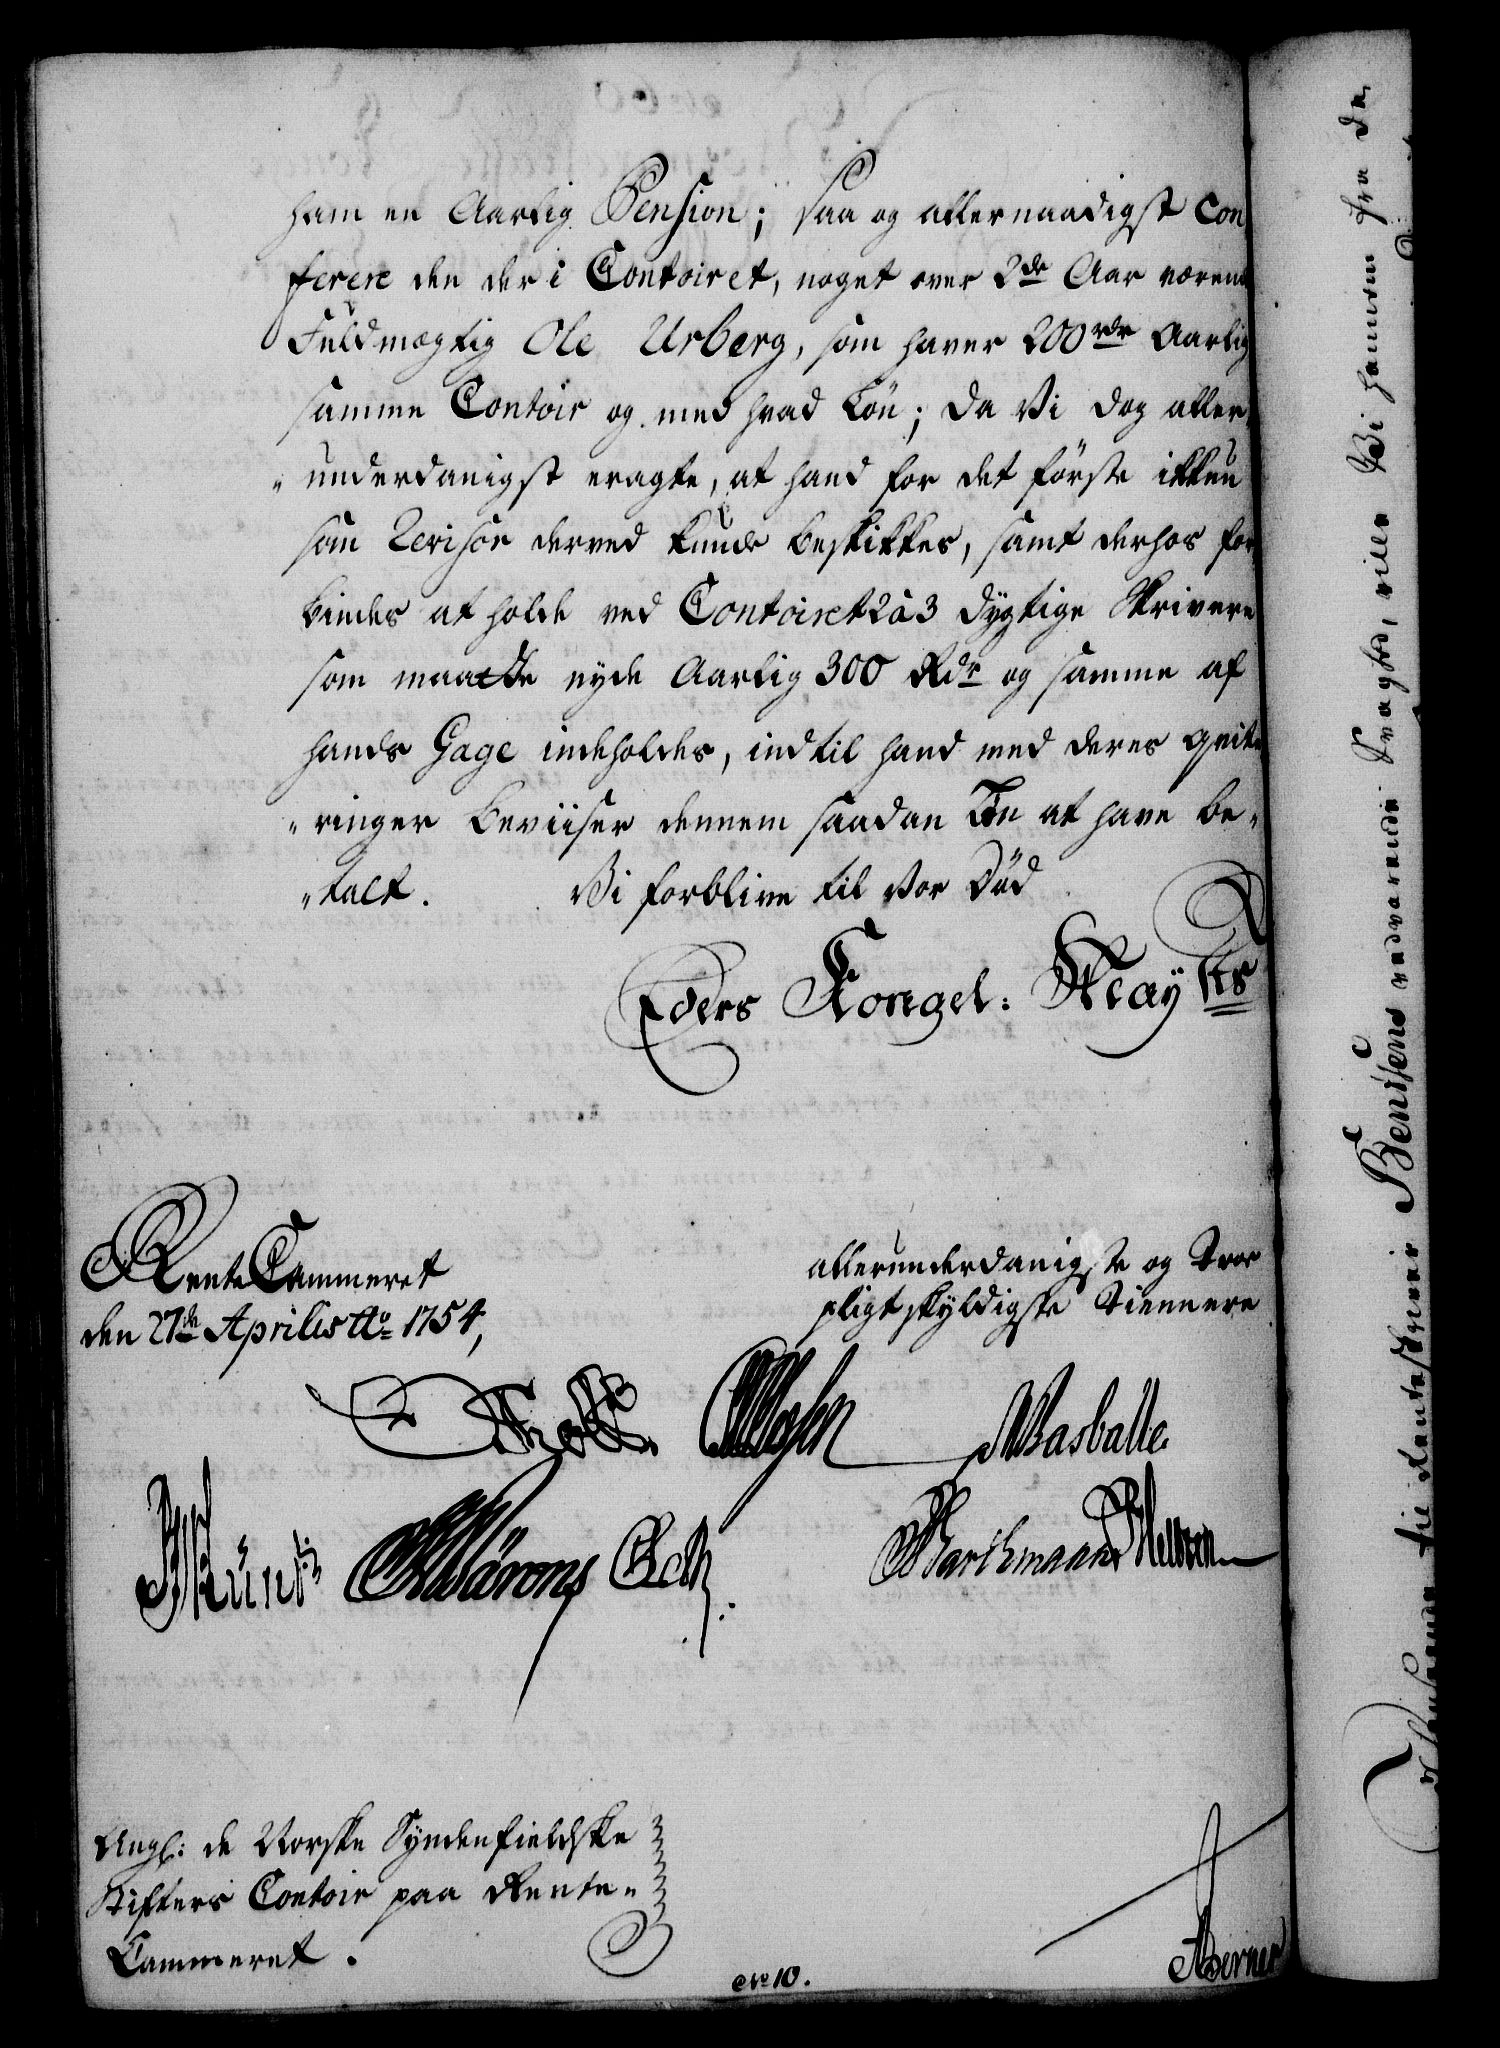 ham en Aarlig Pension; saa og allernaadigst Con
ferere den der i Contoiret, noget over 2de Aar værend
Fuldmægtig Ole Urberg, som haver 200 rdr Aarlig
samme Contoir og med hvad Løn; Da Vi dog aller
"underdanigst eragte, at hand for det første ikkun
som Revisor derved kunde beskikkes, samt derhos for
bindes at holde ved Contoiret 2 à 3 dygtige Skrivere
som maatte nyde Aarlig 300 Rdr og samme af
hands Gage indeholdes, indtil hand med deres qvite
"ringer beviiser dennem saadan Løn at have be"
"talt. Vi forblive til Vor Død
Eders Kongel: May sts
RenteCammeret
den 27de Aprilis Ao 1754,
allerunderdanigste og Troe
pligtskyldigste Tiennere
Masballe
Barthmann
Angl: de Norske Syndenfieldske
Stifters Contoir paa Rente"
Cammeret.
No 10.
Berner
Vi hannem fra de
Svaghed, villen
Bentsens vedvarende
til Renteskriver